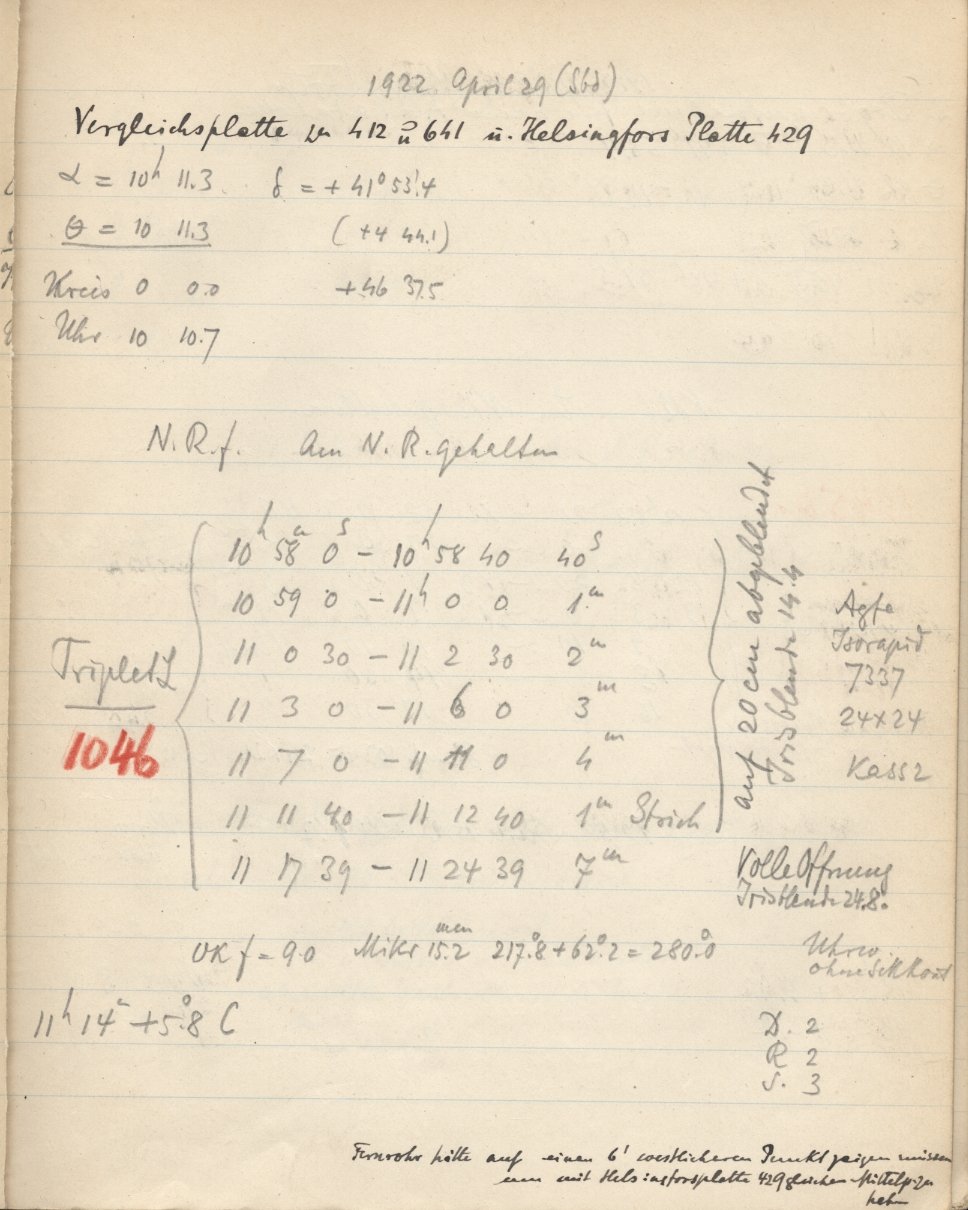 1922 April 29 (Sbd)
Vergleichsplatte zu 412 u 641 u. Helsingfors Platte 429
α = 10h 11.3 δ = + 41° 53'.4
θ = 10 11.3 (+4 44.1)
Kreis 0 0.0 +46 37.5
Uhr 10 10.7
N.R.f. Am N.R. gehalten
10h 58m 0s – 10h 58 40 40s
10 59 0 – 11h 0 0 1m
11 0 30 – 11 2 30 2m
11 3 0 – 11 6 0 3m
11 7 0 – 11 11 0 4m
11 11 40 – 11 12 40 1m Strich
11 17 39 – 11 24 39 7m
Triplet
1046
auf 20 cm abgeblendet
Irisblende 14.4
Agfa
Isorapid
7337
24×24
Kass 2
Volle Öffnung
Irisblende 24.8
OK f = 90 Mikr 15.2 mm 217°.8 + 62°.2 = 280°.0
Uhrw.
ohne Sekkont
11h 14m +5°.8 C
D. 2
R 2
S. 3
Fernrohr hätte auf einen 6' westlicheren Punkt zeigen müssen
um mit Helsingforsplatte 429 gleichen Mittelp. zu
haben